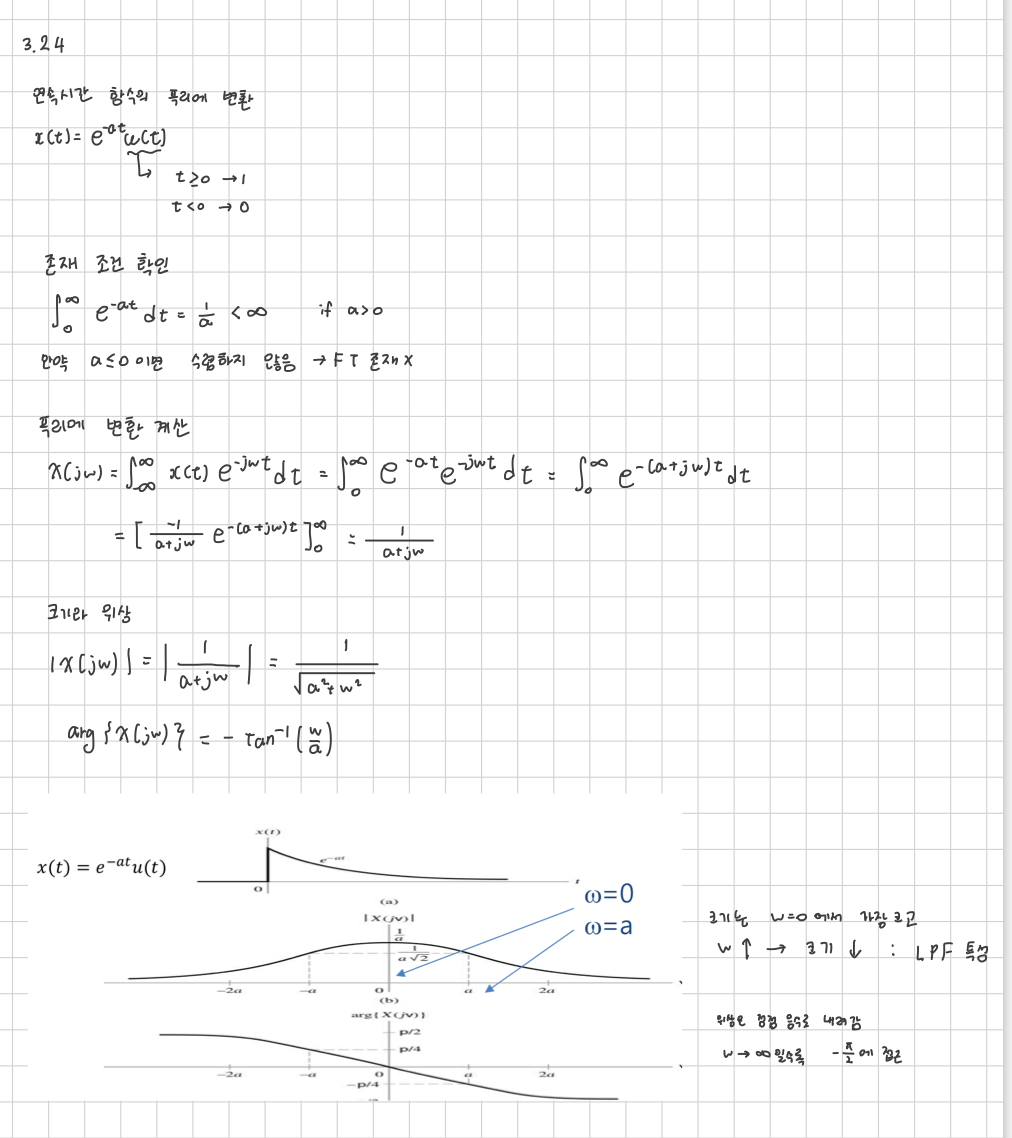 3.24
연속시간 함수의 푸리에 변환
x(t) = e^-at u(t)
t ≥ 0 → 1
t < 0 → 0
존재 조건 확인
∫_0^∞ e^-at dt = 1/a < ∞ if a>0
만약 a ≤ 0 이면 수렴하지 않음 → FT 존재 x
푸리에 변환 계산
X(jw) = ∫_-∞^∞ x(t) e^-jwt dt = ∫_0^∞ e^-at e^-jwt dt = ∫_0^∞ e^-(a+jw)t dt
= [ -1/(a+jw) e^-(a+jw)t ]_0^∞ = 1/(a+jw)
크기와 위상
|X(jw)| = | 1/(a+jw) | = 1/√(a²+w²)
arg{X(jw)} = - tan^-1 (w/a)
x(t)
x(t) = e^-at u(t)
e^-at
0
t
(a)
ω=0
ω=a
|X(jv)|
1/a
1/(a√2)
-2a -a 0 a 2a
(b)
arg{X(jv)}
p/2
p/4
-2a -a 0 a 2a
-p/4
크기는 w=0 에서 가장 크고
w ↑ → 크기 ↓ : LPF 특성
위상은 점점 음수로 내려감
w → ∞ 일수록 -π/2 에 접근